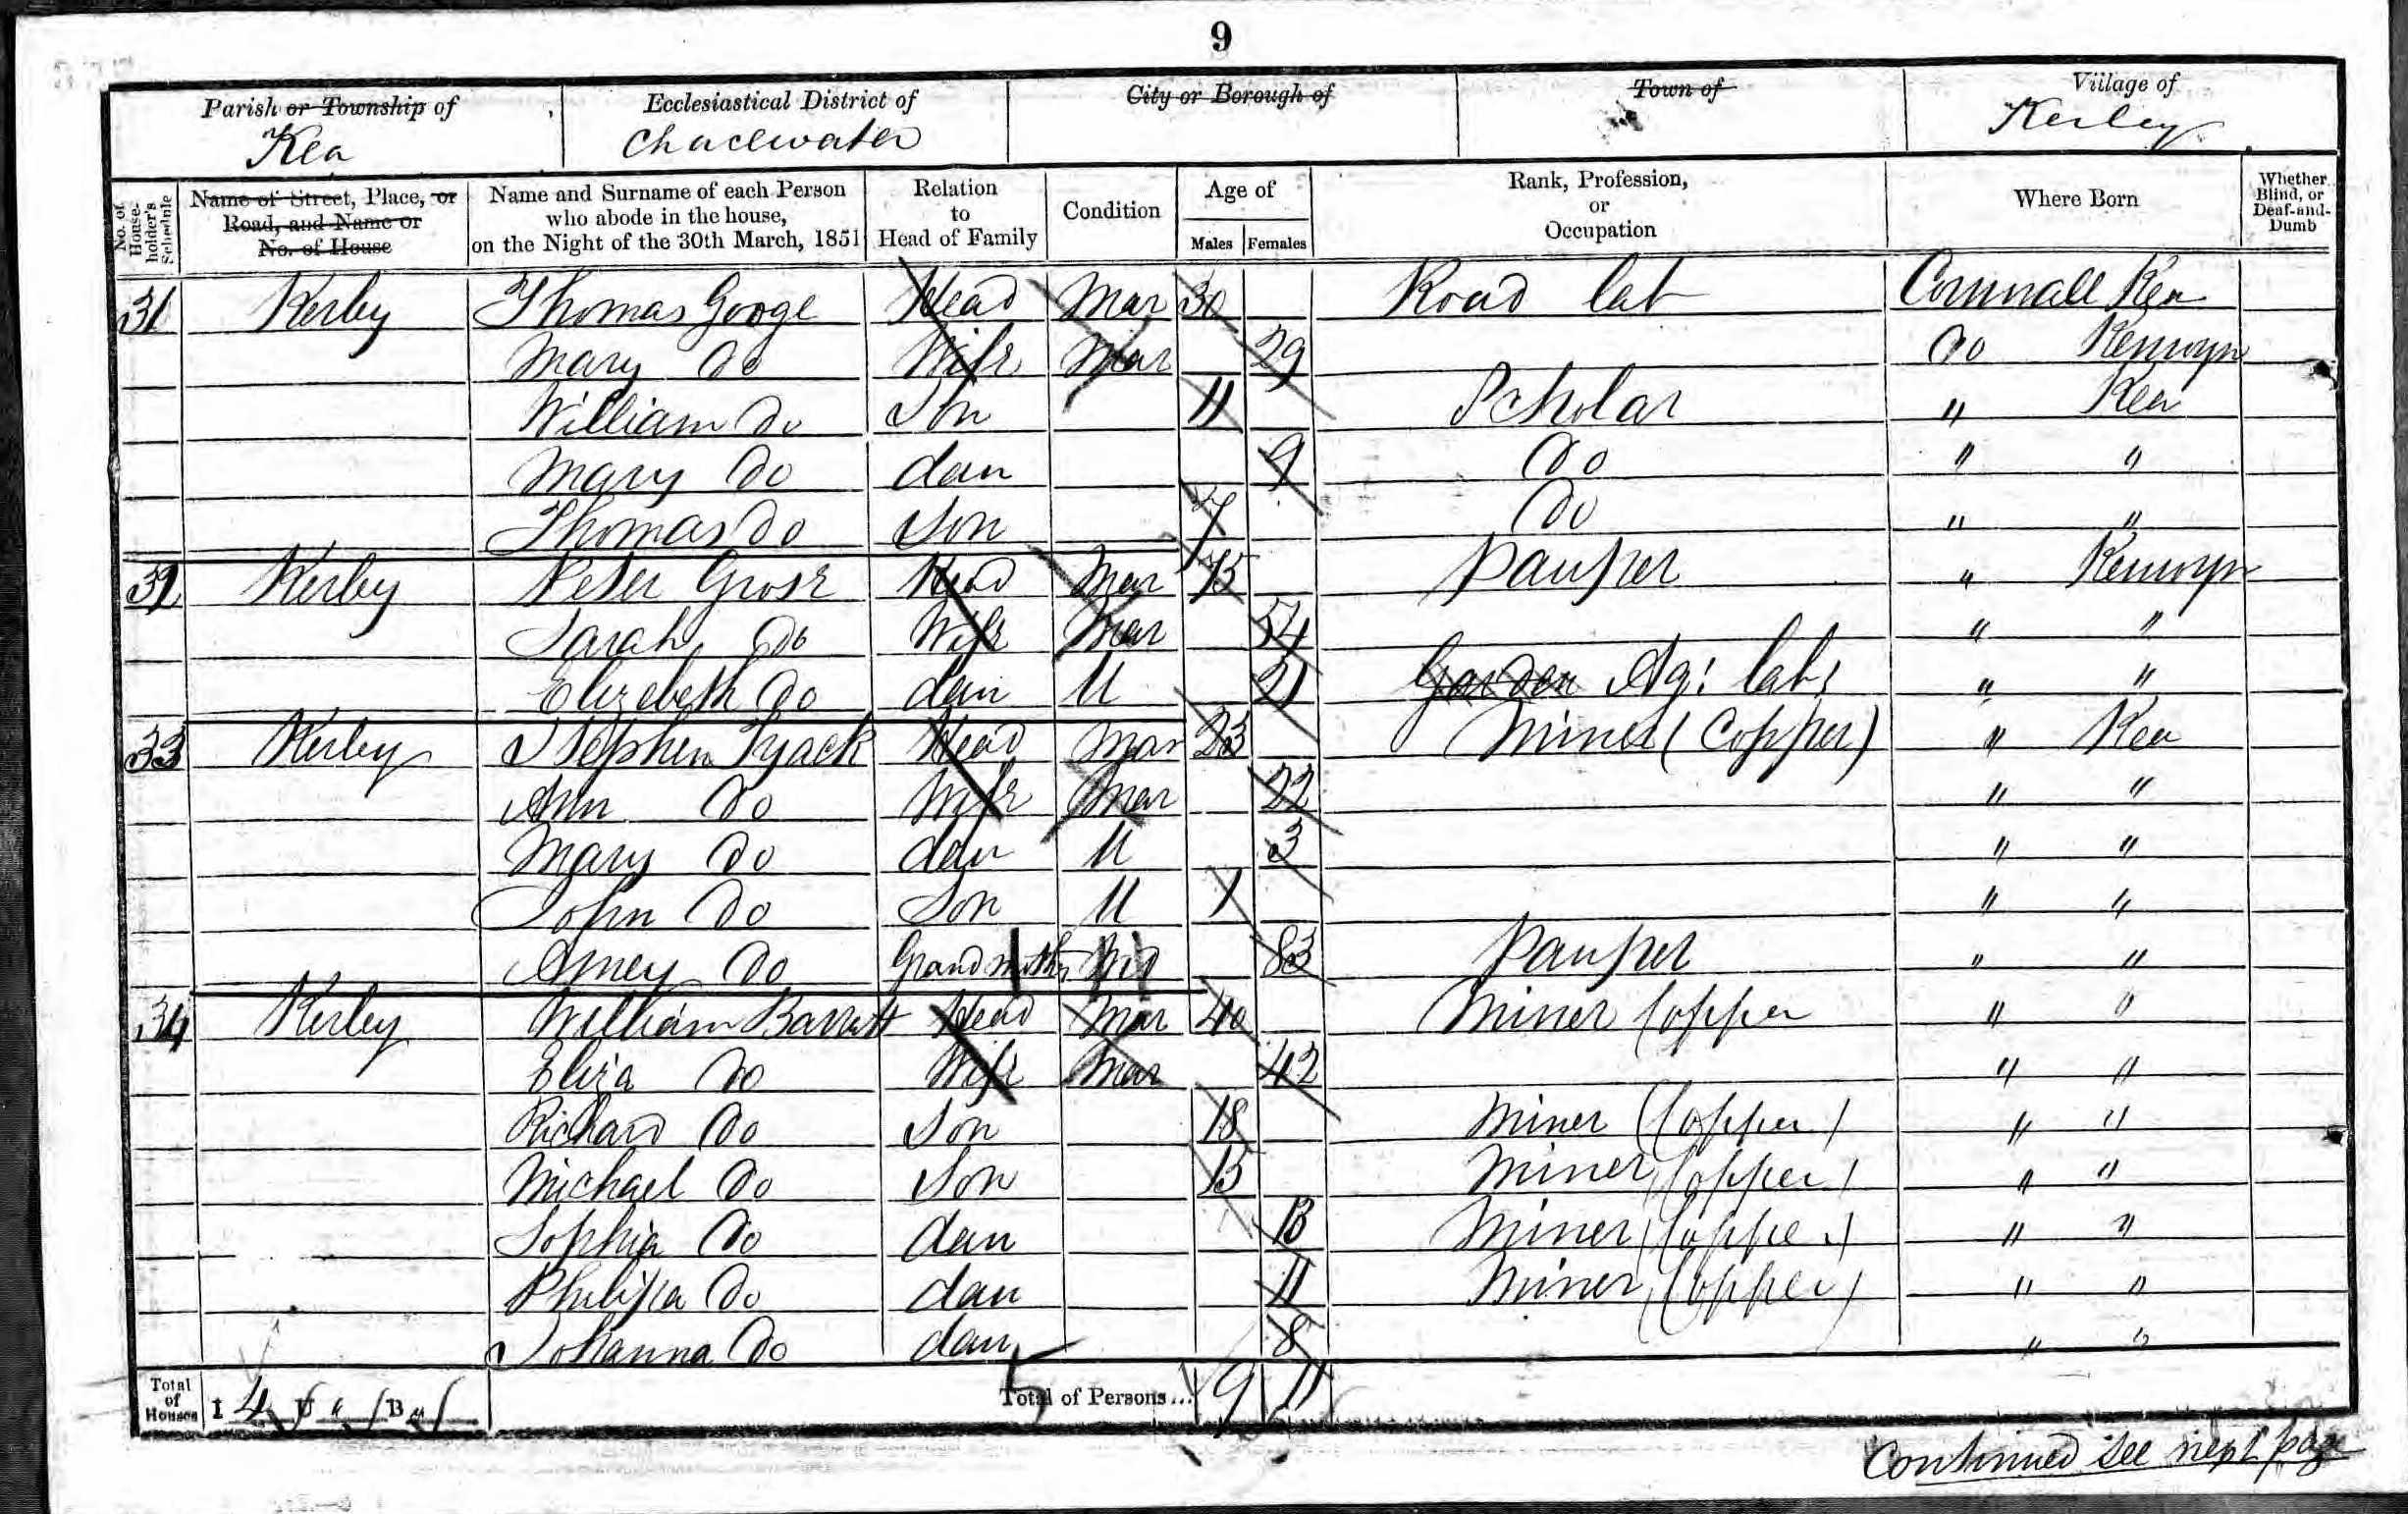 9
Parish or Township of
Kea
Ecclesiastical District of
Chacewater
City or Borough of
Town of
Village of
Kerley
No. of House-holder's Schedule
Name of Street, Place, or Road, and Name or No. of House
Name and Surname of each Person who abode in the house, on the Night of the 30th March, 1851
Relation to Head of Family
Condition
Age of
Males Females
Rank, Profession, or Occupation
Where Born
Whether Blind, or Deaf-and-Dumb
31 Kerley Thomas Googe Head Mar 30 Road lab Cornwall Kea
Mary Do Wife Mar 29 Do Kenwyn
William Do Son 11 Scholar " Kea
Mary Do dau 9 Do " "
Thomas Do Son 7 Do " "
32 Kerley Peter Grose Head Mar 75 Pauper " Kenwyn
Sarah Do Wife Mar 54 " "
Elizebeth Do dau U 21 Garden Ag: lab " "
33 Kerley Stephen Tyack Head Mar 23 Miner (Copper) " Kea
Ann Do Wife Mar 22 " "
Mary Do dau U 3 " "
John Do Son U 1 " "
Amey Do Grandmother Wid 83 Pauper " "
34 Kerley William Barrett Head Mar 40 Miner Copper " "
Eliza Do Wife Mar 42 " "
Richard Do Son 18 Miner (Copper) " "
Michael Do Son 15 Miner (Copper) " "
Sophia Do dau 13 Miner (Copper) " "
Philippa Do dau 11 Miner (Copper) " "
Johanna Do dau 8 " "
Total of Houses I 4 U " B "
Total of Persons... 9 11
5
Continued see next page